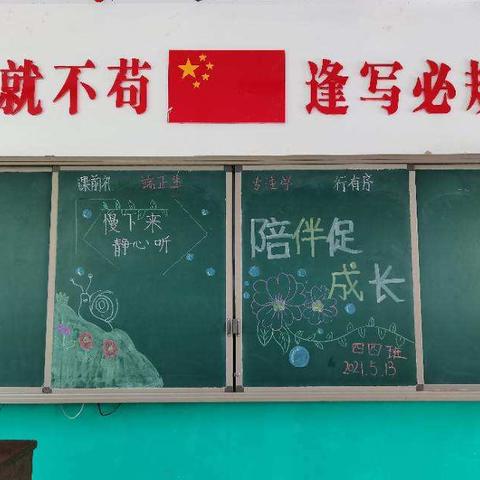 就不苟 逢写必规
课前礼 端正坐 专注学 行有序
慢下来
静心听
陪伴促
成长
四四班
2021.5.13